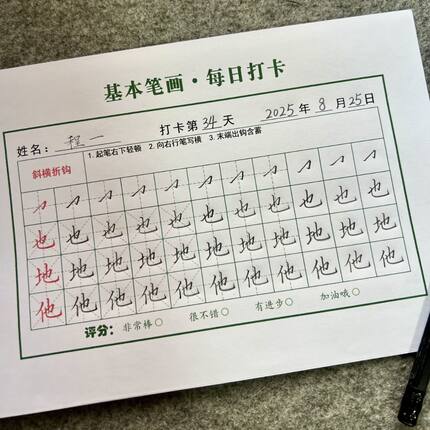 基本笔画·每日打卡
姓名：程一 打卡第34天 2025年8月25日
斜横折钩 1.起笔右下轻顿 2.向右行笔写横 3.末端出钩含蓄
也 也 也 也 也 也 也 也 也 也 也
地 地 地 地 地 地 地 地 地 地 地
他 他 他 他 他 他 他 他 他 他 他
评分： 非常棒○ 很不错○ 有进步○ 加油哦○